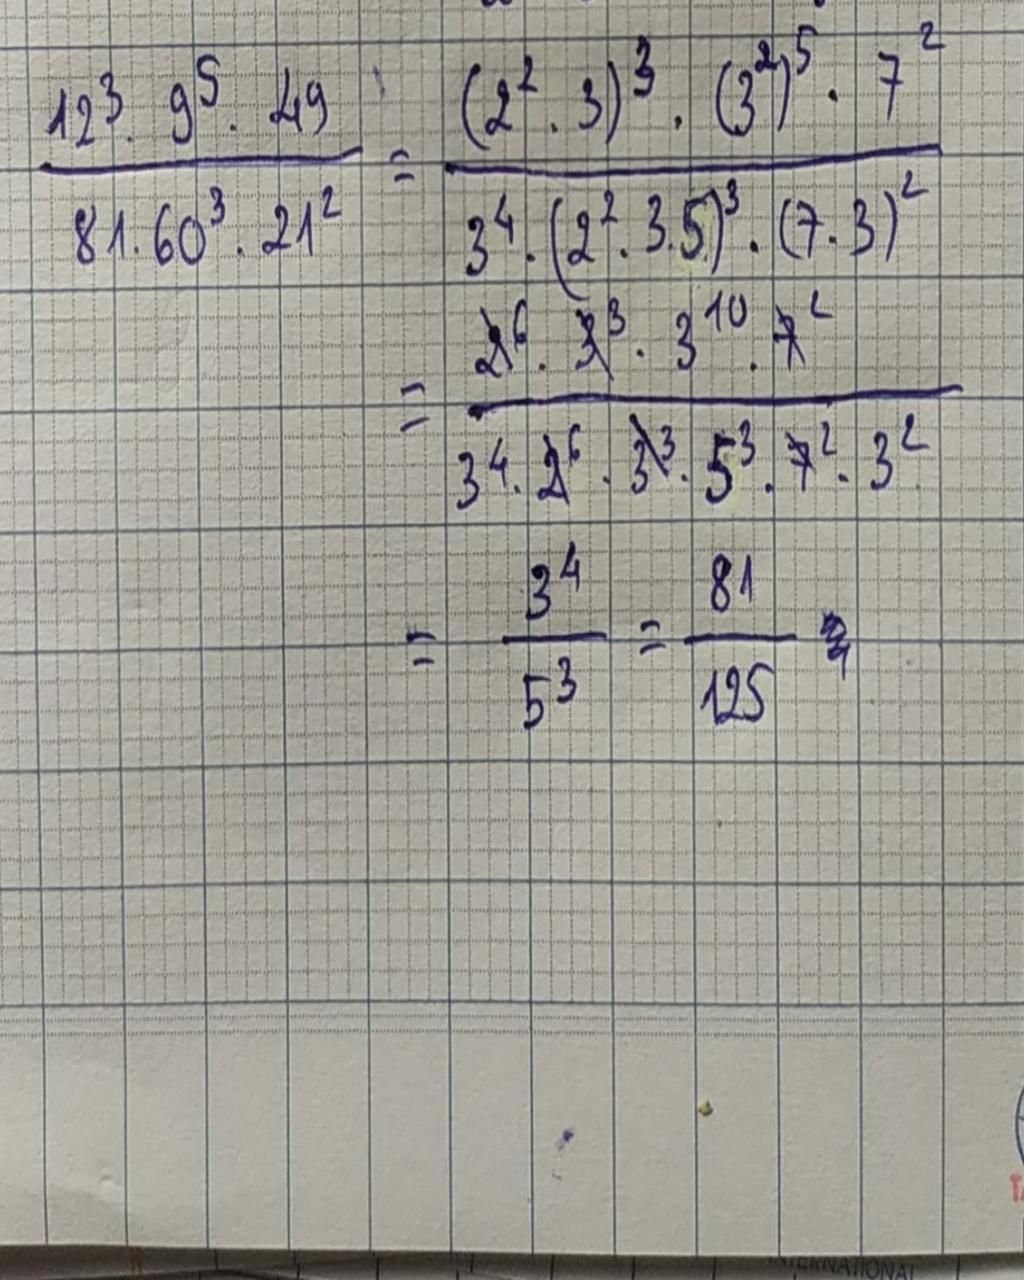 12³ . 9⁵ . 49 / 81 . 60³ . 21² = (2² . 3)³ . (3²)⁵ . 7² / 3⁴ . (2² . 3 . 5)³ . (7 . 3)²
= 2⁶ . 3³ . 3¹⁰ . 7² / 3⁴ . 2⁶ . 3³ . 5³ . 7² . 3²
= 3⁴ / 5³ = 81 / 125